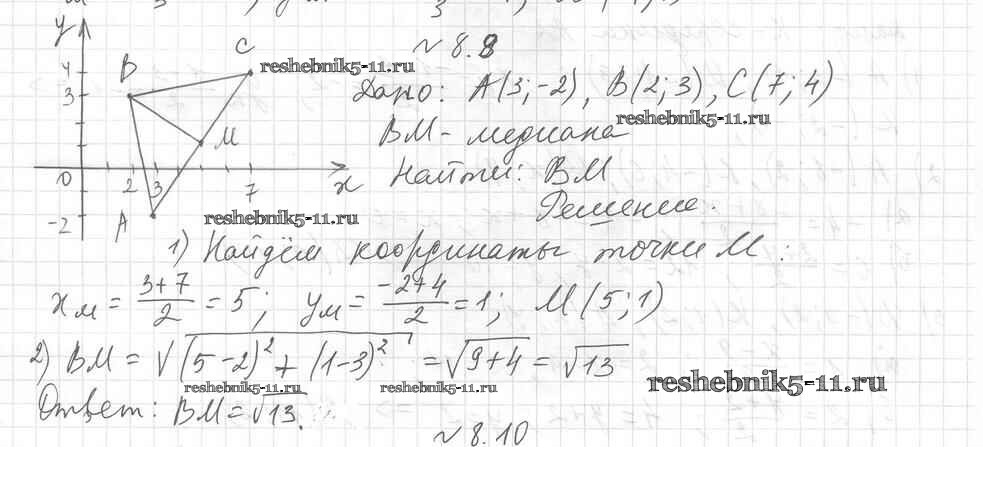 ~ 8.8
y
B
C
4
3
M
0
2
3
7
x
-2
A
reshebnik5-11.ru
Дано: A(3;-2), B(2;3), C(7;4)
reshebnik5-11.ru
BM - медиана
Найти: BM
Решение.
reshebnik5-11.ru
1) Найдём координаты точки M:
x_M = (3+7)/2 = 5; y_M = (-2+4)/2 = 1; M(5;1)
2) BM = √((5-2)² + (1-3)²) = √(9+4) = √13
reshebnik5-11.ru reshebnik5-11.ru reshebnik5-11.ru
Ответ: BM = √13.
~ 8.10